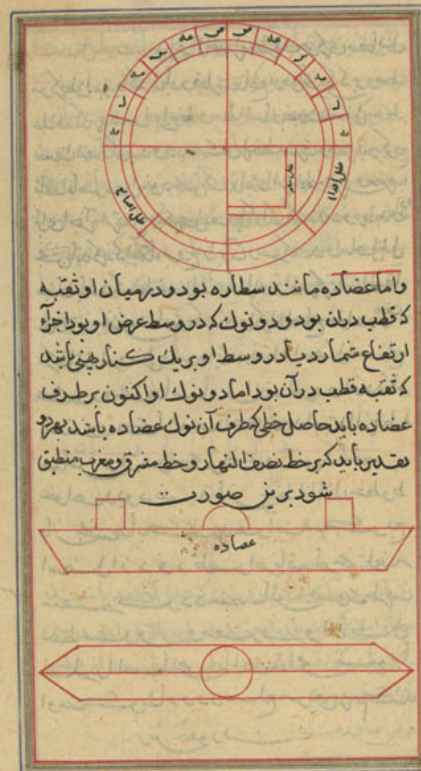 ظل اصابع
ظل اقدام
واما عضاده مانند سطاره بود و در میان او ثقبه
که قطب دران بود و دو نوک که در وسط عرض او بود اجزآء
ارتفاع شمارد یا در وسط او بر یک کنار پهنی باشد
که ثقبه قطب در آن بود اما دو نوک او اکنون بر طرف
عضاده باید حاصل خطی که طرف آن نوک عضاده باشد بهر دو
تقدیر باید که بر خط نصف النهار و خط مشرق و مغرب منطبق
شود برین صورت
عضاده